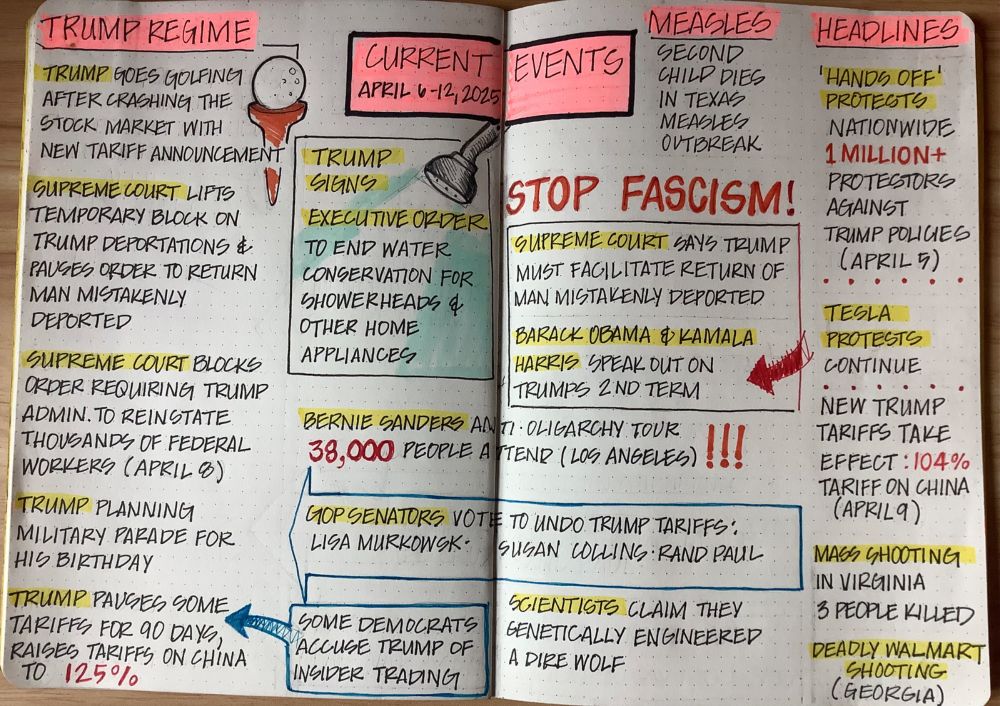 TRUMP REGIME
TRUMP GOES GOLFING
AFTER CRASHING THE
STOCK MARKET WITH
NEW TARIFF ANNOUNCEMENT
SUPREME COURT LIFTS
TEMPORARY BLOCK ON
TRUMP DEPORTATIONS &
PAUSES ORDER TO RETURN
MAN MISTAKENLY
DEPORTED
SUPREME COURT BLOCKS
ORDER REQUIRING TRUMP
ADMIN. TO REINSTATE
THOUSANDS OF FEDERAL
WORKERS (APRIL 8)
TRUMP PLANNING
MILITARY PARADE FOR
HIS BIRTHDAY
TRUMP PAUSES SOME
TARIFFS FOR 90 DAYS,
RAISES TARIFFS ON CHINA
TO 125%
CURRENT EVENTS
APRIL 6-12, 2025
TRUMP
SIGNS
EXECUTIVE ORDER
TO END WATER
CONSERVATION FOR
SHOWERHEADS &
OTHER HOME
APPLIANCES
MEASLES
SECOND
CHILD DIES
IN TEXAS
MEASLES
OUTBREAK
STOP FASCISM!
SUPREME COURT SAYS TRUMP
MUST FACILITATE RETURN OF
MAN MISTAKENLY DEPORTED
BARACK OBAMA & KAMALA
HARRIS SPEAK OUT ON
TRUMPS 2ND TERM
BERNIE SANDERS ANTI·OLIGARCHY TOUR
38,000 PEOPLE ATTEND (LOS ANGELES) !!!
GOP SENATORS VOTE TO UNDO TRUMP TARIFFS:
LISA MURKOWSK· SUSAN COLLINS·RAND PAUL
SOME DEMOCRATS
ACCUSE TRUMP OF
INSIDER TRADING
SCIENTISTS CLAIM THEY
GENETICALLY ENGINEERED
A DIRE WOLF
HEADLINES
'HANDS OFF'
PROTECTS
NATIONWIDE
1 MILLION+
PROTESTORS
AGAINST
TRUMP POLICIES
(APRIL 5)
TESLA
PROTESTS
CONTINUE
NEW TRUMP
TARIFFS TAKE
EFFECT: 104%
TARIFF ON CHINA
(APRIL 9)
MASS SHOOTING
IN VIRGINIA
3 PEOPLE KILLED
DEADLY WALMART
SHOOTING
(GEORGIA)